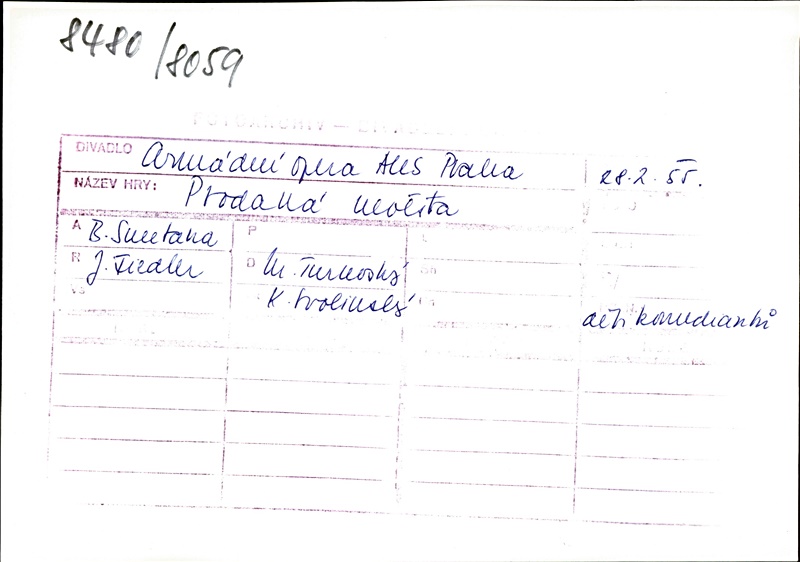 8480/8059
FOTOARCHIV —
DIVADLO Armádní opera AUS Praha 28.2.55.
NÁZEV HRY: Prodaná nevěsta
A B. Smetana P
R J. Fiedler D M. Turnovský
K. Svolinský
děti komediantů